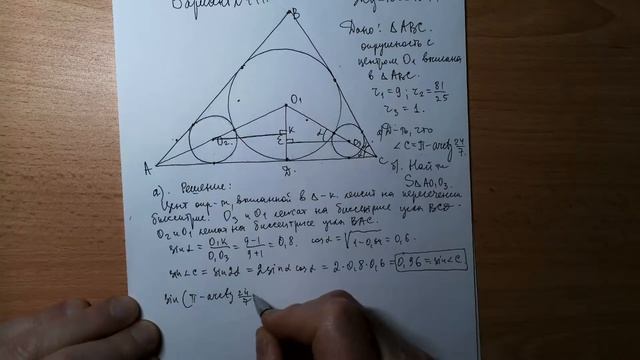 B
Дано: Δ ABC.
окружность с
центром O₁ вписана
в Δ ABC.
r₁ = 9; r₂ = 81/25
r₃ = 1.
а) Д-ть, что
∠C = π - arctg 24/7.
б). Найти
S ΔAO₁O₃.
O₁
K
E
O₂
O₃
A
D.
C
а). Решение:
Цент окр-ти, вписанной в Δ-к лежит на пересечении
биссектрис. O₃ и O₁ лежат на биссектрисе угла BCD
O₂ и O₁ лежат на биссектрисе угла BAC.
sin α = O₁K/O₁O₃ = 9-1/9+1 = 0,8. cos α = √1-0,64 = 0,6.
sin∠C = sin 2α = 2 sin α cos α = 2·0,8·0,6 = 0,96 = sin∠C
sin (π - arctg 24/7